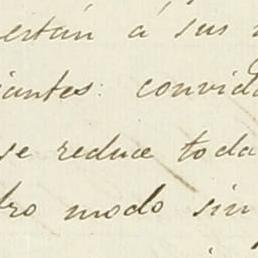 ertán á sus
iantes: convida
se reduce toda
tro modo sin